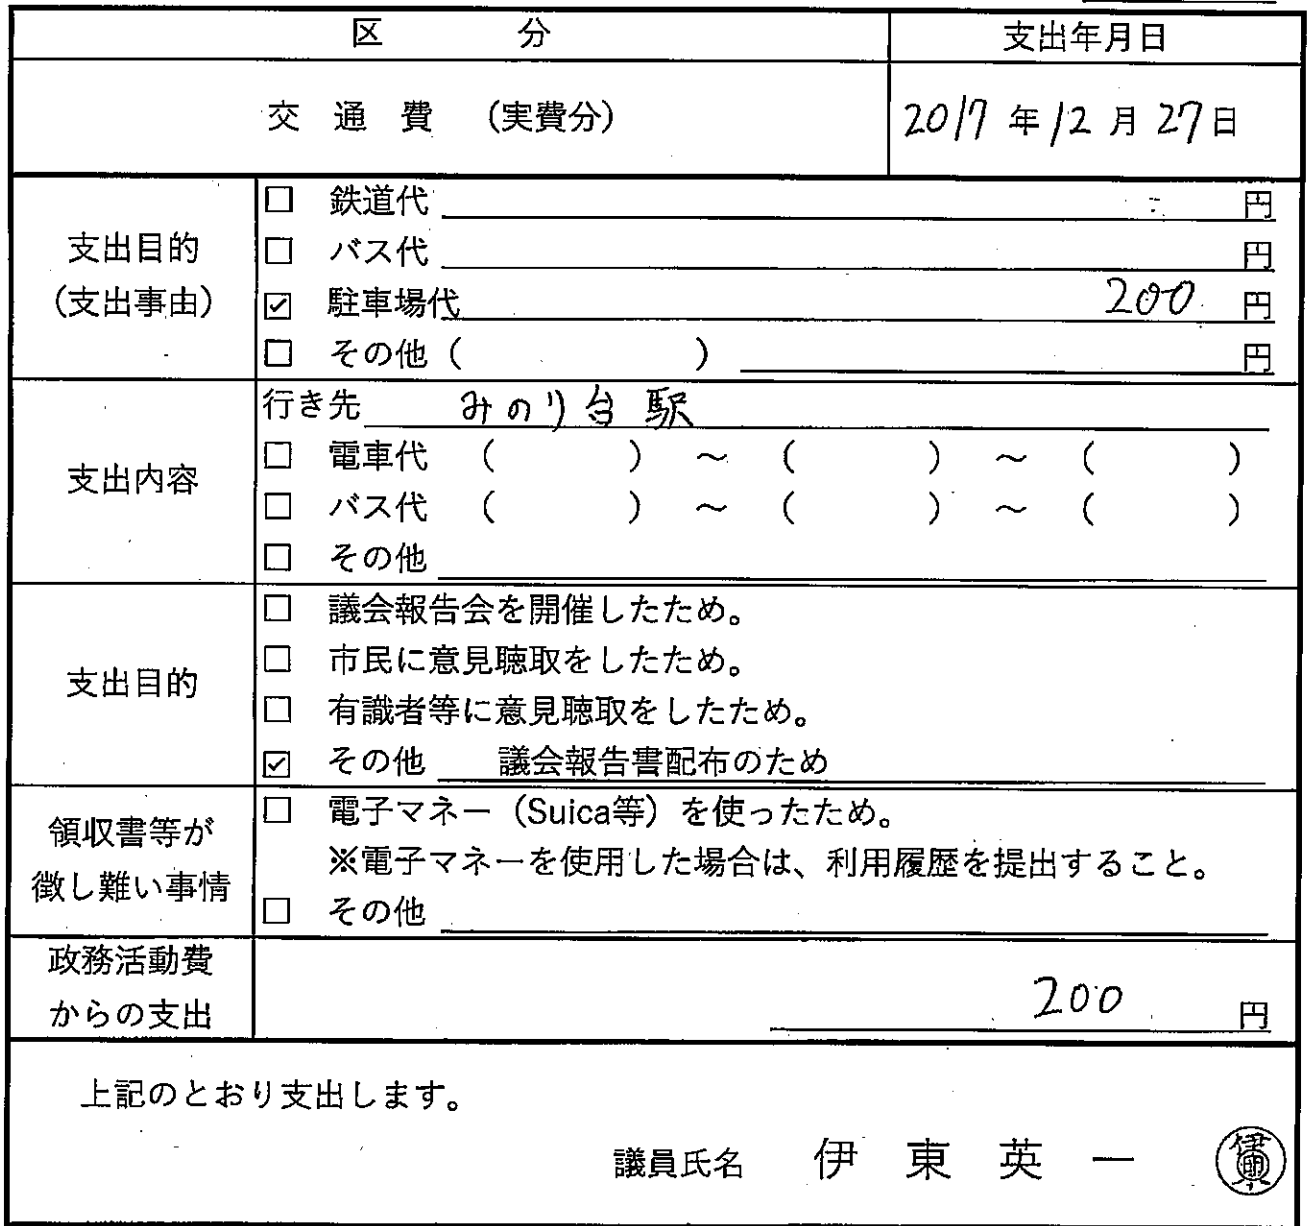 区 分 支出年月日
交 通 費 (実費分) 2017年12月27日
支出目的
(支出事由)
□ 鉄道代 円
□ バス代 円
☑ 駐車場代 200 円
□ その他 ( ) 円
支出内容
行き先 みのり台駅
□ 電車代 ( ) ～ ( ) ～ ( )
□ バス代 ( ) ～ ( ) ～ ( )
□ その他
支出目的
□ 議会報告会を開催したため。
□ 市民に意見聴取をしたため。
□ 有識者等に意見聴取をしたため。
☑ その他 議会報告書配布のため
領収書等が
徴し難い事情
□ 電子マネー（Suica等）を使ったため。
※電子マネーを使用した場合は、利用履歴を提出すること。
□ その他
政務活動費
からの支出
200 円
上記のとおり支出します。
議員氏名 伊 東 英 一